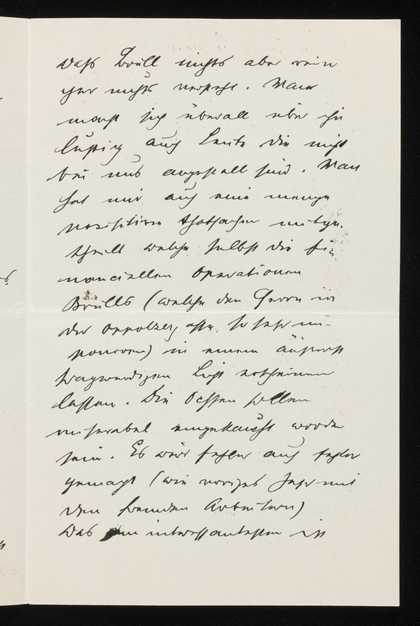 daß Brüll nichts aber rein
gar nichts versteht. Man
macht sich überall über ihn
lustig auch Leute die nicht
bei uns angestellt sind. Man
hat mir auch eine menge
positiven thatsachen mitge-
theilt welche selbst die fi-
nanciellen operationen
Brülls (welche den Herren in
der Oppolzerg. so sehr im-
ponieren) in einem äußerst
fragwürdigen Licht erscheinen
lassen. Die Ochsen sollen
miserabel eingekauft worden
sein. Es wird fehler auf fehler
gemacht (wie voriges Jahr mit
den fremden Arbeitern)
Das interessanteste ist